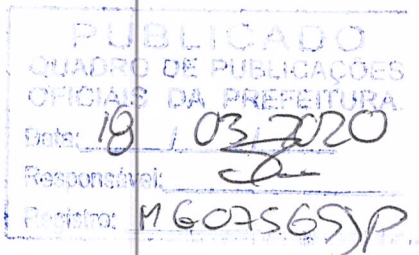 PUBLICADO
QUADRO DE PUBLICAÇÕES
OFICIAIS DA PREFEITURA
Data: 18 / 03 / 2020
Responsável:
Registro: MG07565JP